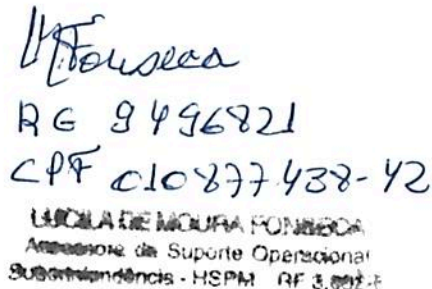 MFonseca
RG 9496821
CPF 010877438-42
LUCILA DE MOURA FONSECA
Assessora de Suporte Operacional
Superintendência - HSPM RF